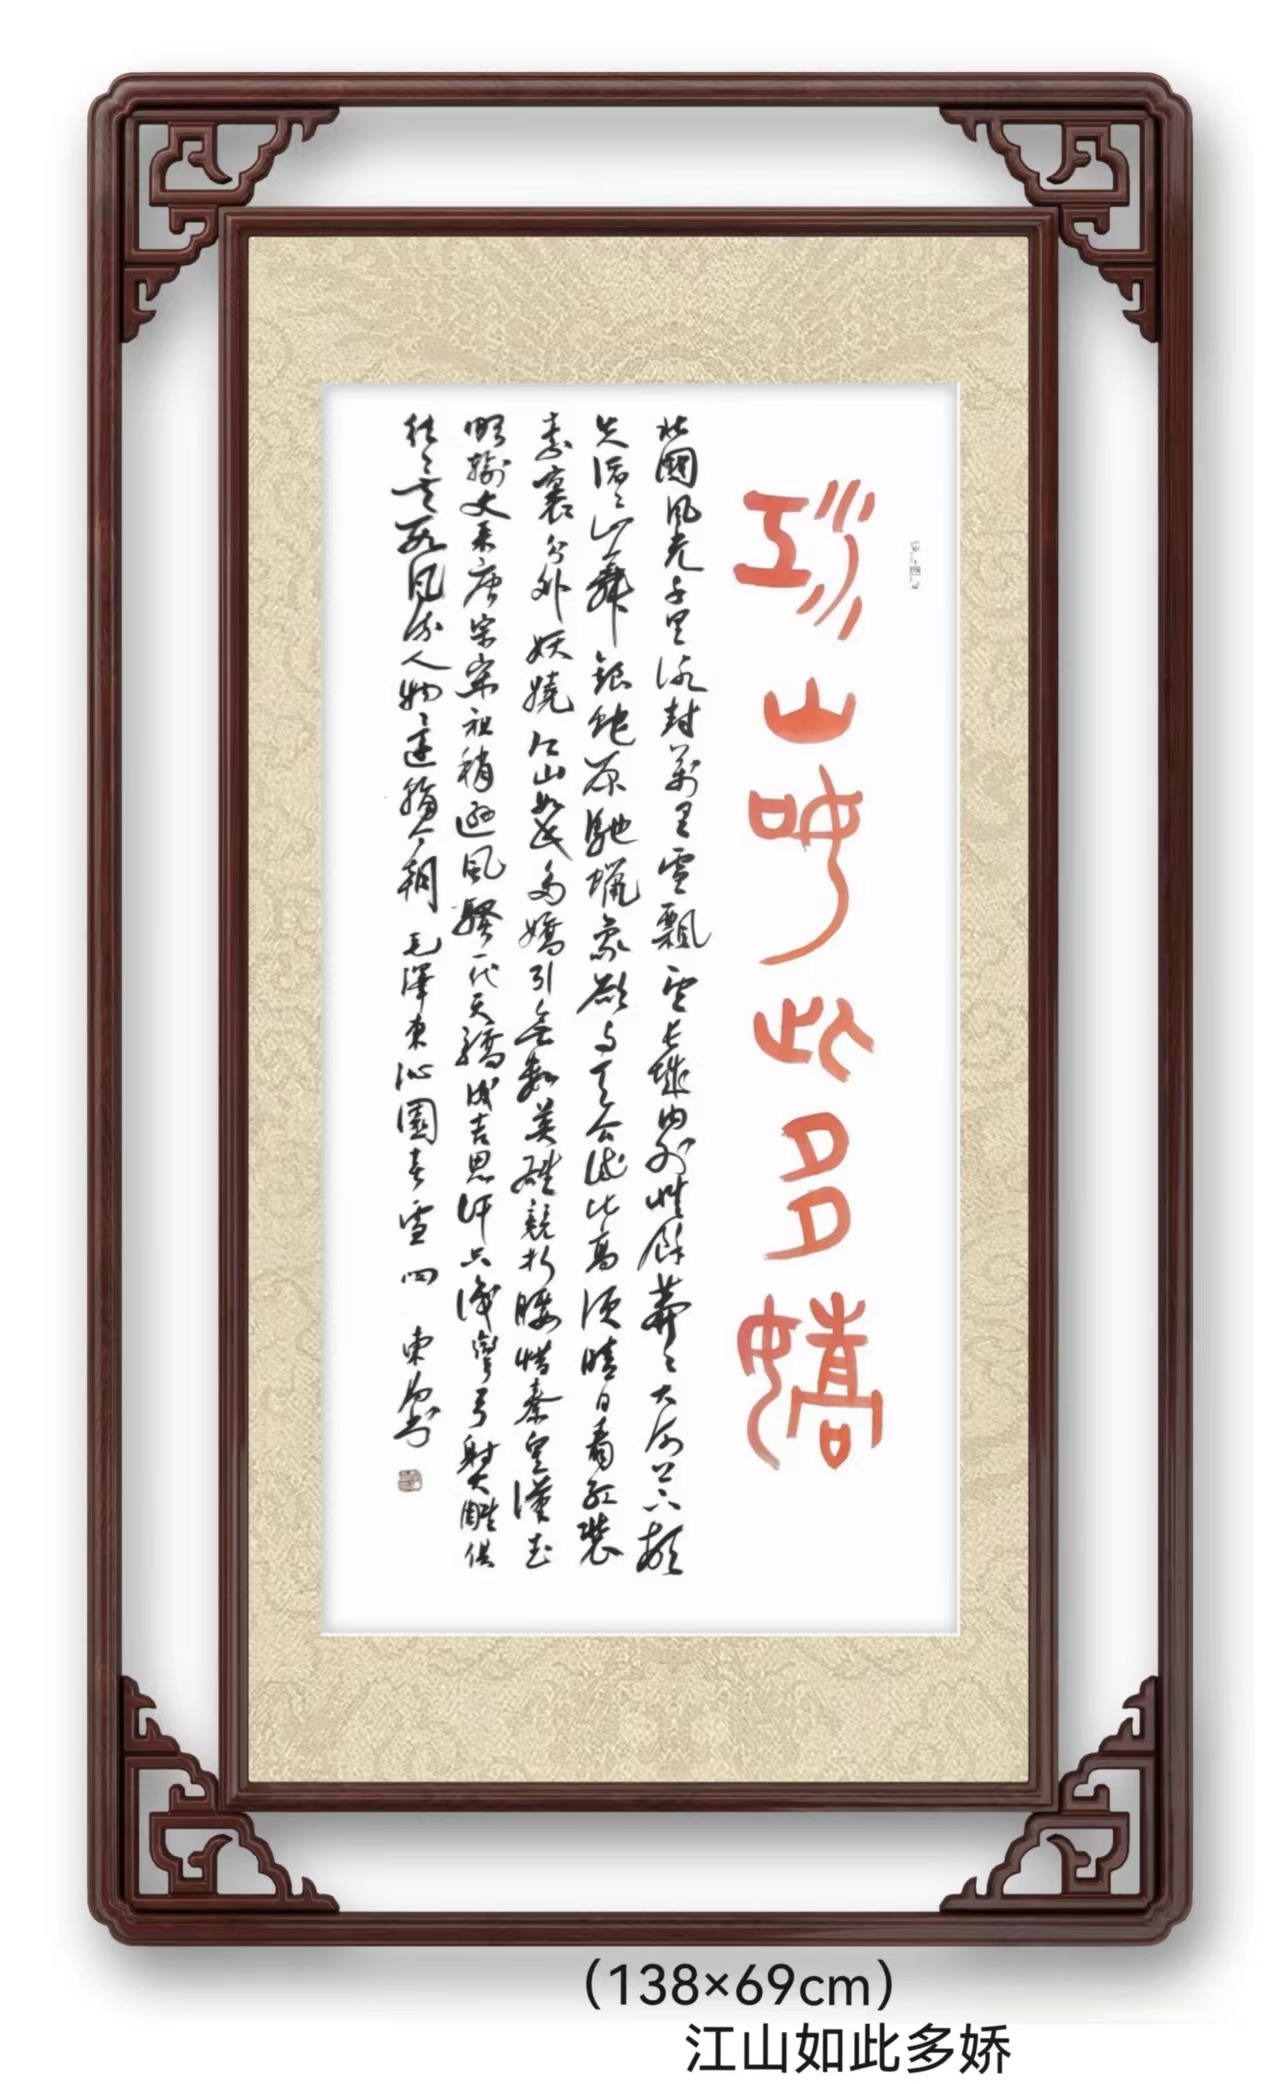 江山如此多嬌
北國風光千里冰封萬里雪飄望長城內外惟餘莽〻大河上下頓
失滔〻山舞銀蛇原馳蠟象欲与天公試比高須晴日看紅裝
素裹分外妖嬈江山如此多嬌引無數英雄競折腰惜秦皇漢武
略輸文采唐宗宋祖稍遜風騷一代天驕成吉思汗只識彎弓射大雕俱
往〻矣數風流人物還看今朝 毛澤東沁園春雪
(138×69cm)
江山如此多娇